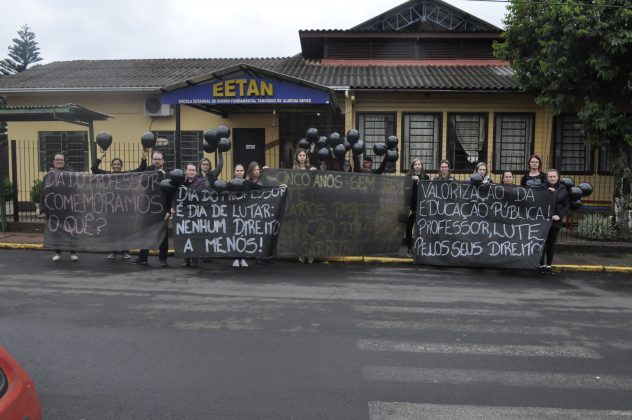 EETAN
ESCOLA ESTADUAL DE ENSINO FUNDAMENTAL TANCREDO DE ALMEIDA NEVES
DIA DO PROFESSOR
COMEMORAMOS
O QUÊ?
DIA DO PROFESSOR
É DIA DE LUTAR:
NENHUM DIREITO
A MENOS!
CINCO ANOS SEM
VALORIZAÇÃO DA
EDUCAÇÃO PÚBLICA!
PROFESSOR, LUTE
PELOS SEUS DIREITO